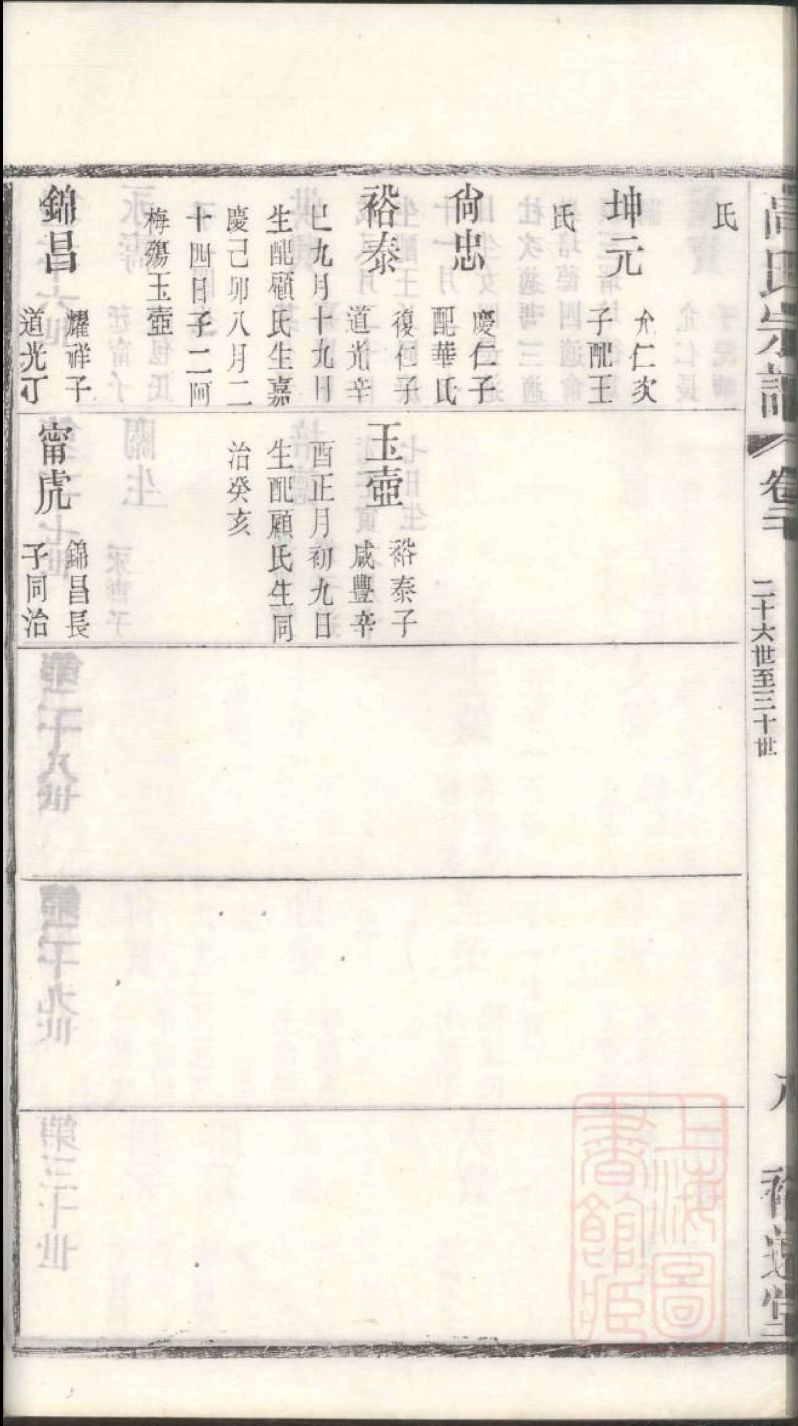 氏宗譜
卷二
二十六世至三十世
氏
坤元
允仁次
子配王
氏
尙忠
慶仁子
配華氏
裕泰
復仁子
道光辛
巳九月十九日
生配顧氏生嘉
慶己卯八月二
十四日子二阿
梅殤玉壺
錦昌
耀祥子
道光丁
玉壺
裕泰子
咸豐辛
酉正月初九日
生配顧氏生同
治癸亥
甯虎
錦昌長
子同治
上海圖
書館藏